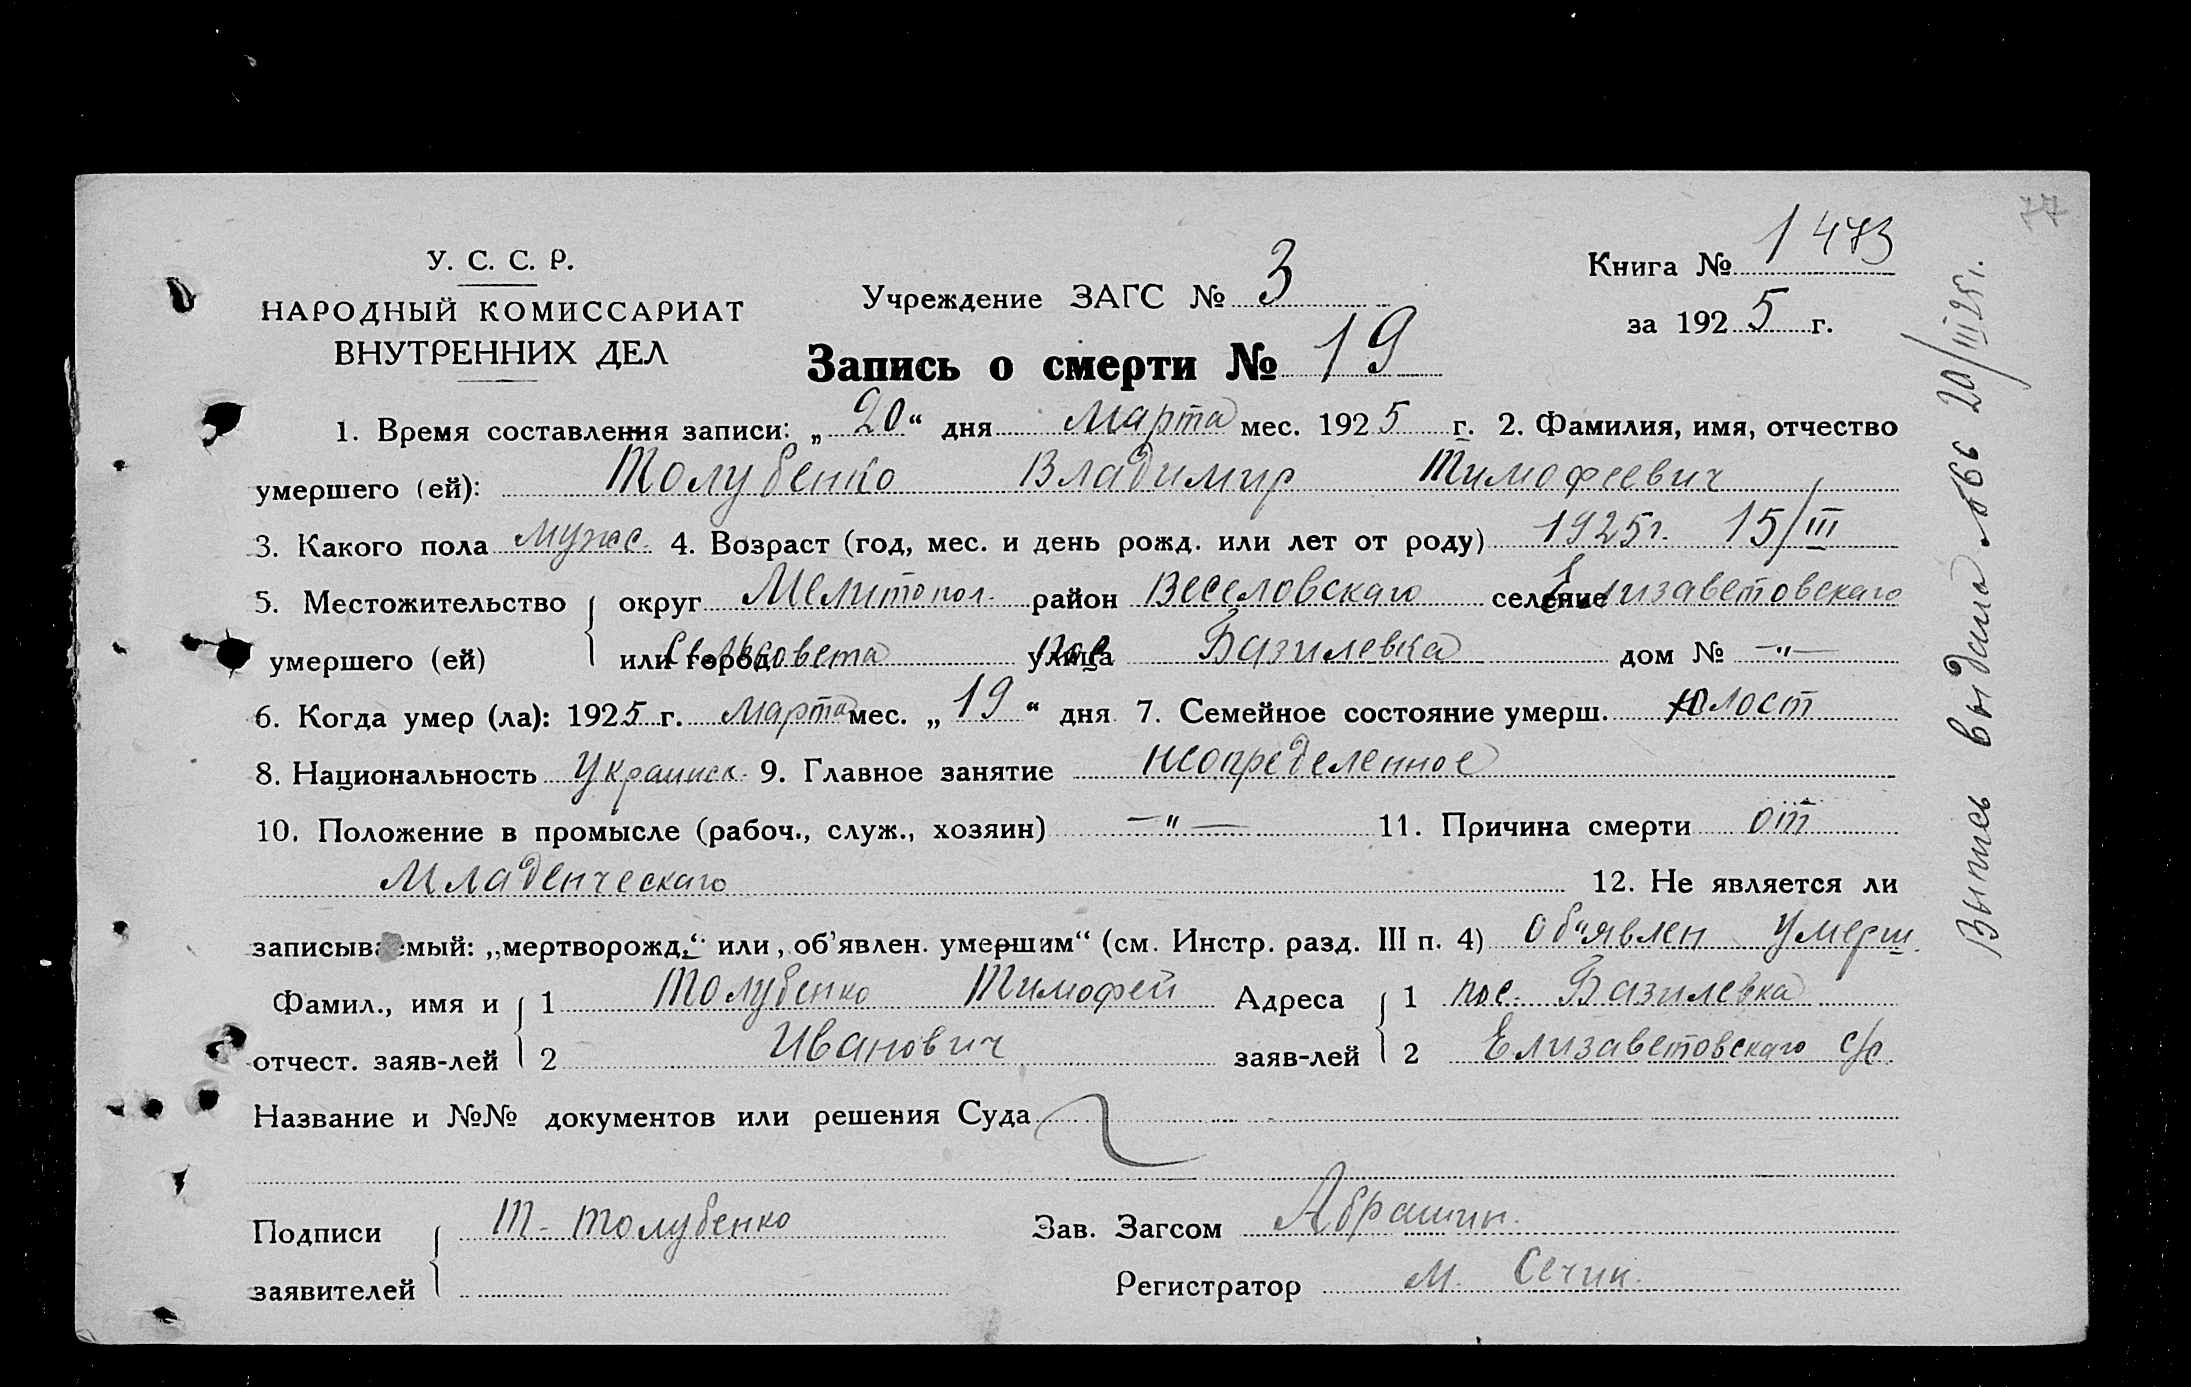 77
У. С. С. Р.
НАРОДНЫЙ КОМИССАРИАТ
ВНУТРЕННИХ ДЕЛ
Учреждение ЗАГС № 3
Книга № 1473
за 1925 г.
Запись о смерти № 19
1. Время составления записи: „20“ дня марта мес. 1925 г. 2. Фамилия, имя, отчество
умершего (ей): Толубенко Владимир Тимофеевич
3. Какого пола мужс. 4. Возраст (год, мес. и день рожд. или лет от роду) 1925г. 15/III
5. Местожительство округ Мелитопол. район Веселовскаго селение Елизаветовскаго
умершего (ей) или город Сельсовета улица пос. Базилевка дом № —"—
6. Когда умер (ла): 1925 г. марта мес. „19“ дня 7. Семейное состояние умерш. холост
8. Национальность Украинск. 9. Главное занятие неопределенное
10. Положение в промысле (рабоч., служ., хозяин) —"— 11. Причина смерти от
Младенческаго 12. Не является ли
записываемый: „мертворожд.“ или „об'явлен. умершим“ (см. Инстр. разд. III п. 4) Об"явлен умерш.
Фамил., имя и 1 Толубенко Тимофей Адреса 1 пос. Базилевка
отчест. заяв-лей 2 Иванович заяв-лей 2 Елизаветовскаго с/с.
Название и №№ документов или решения Суда
Подписи Т. Толубенко Зав. Загсом Абрашин.
заявителей Регистратор М. Сечин.
Выпись выдана №66 20/III 25г.